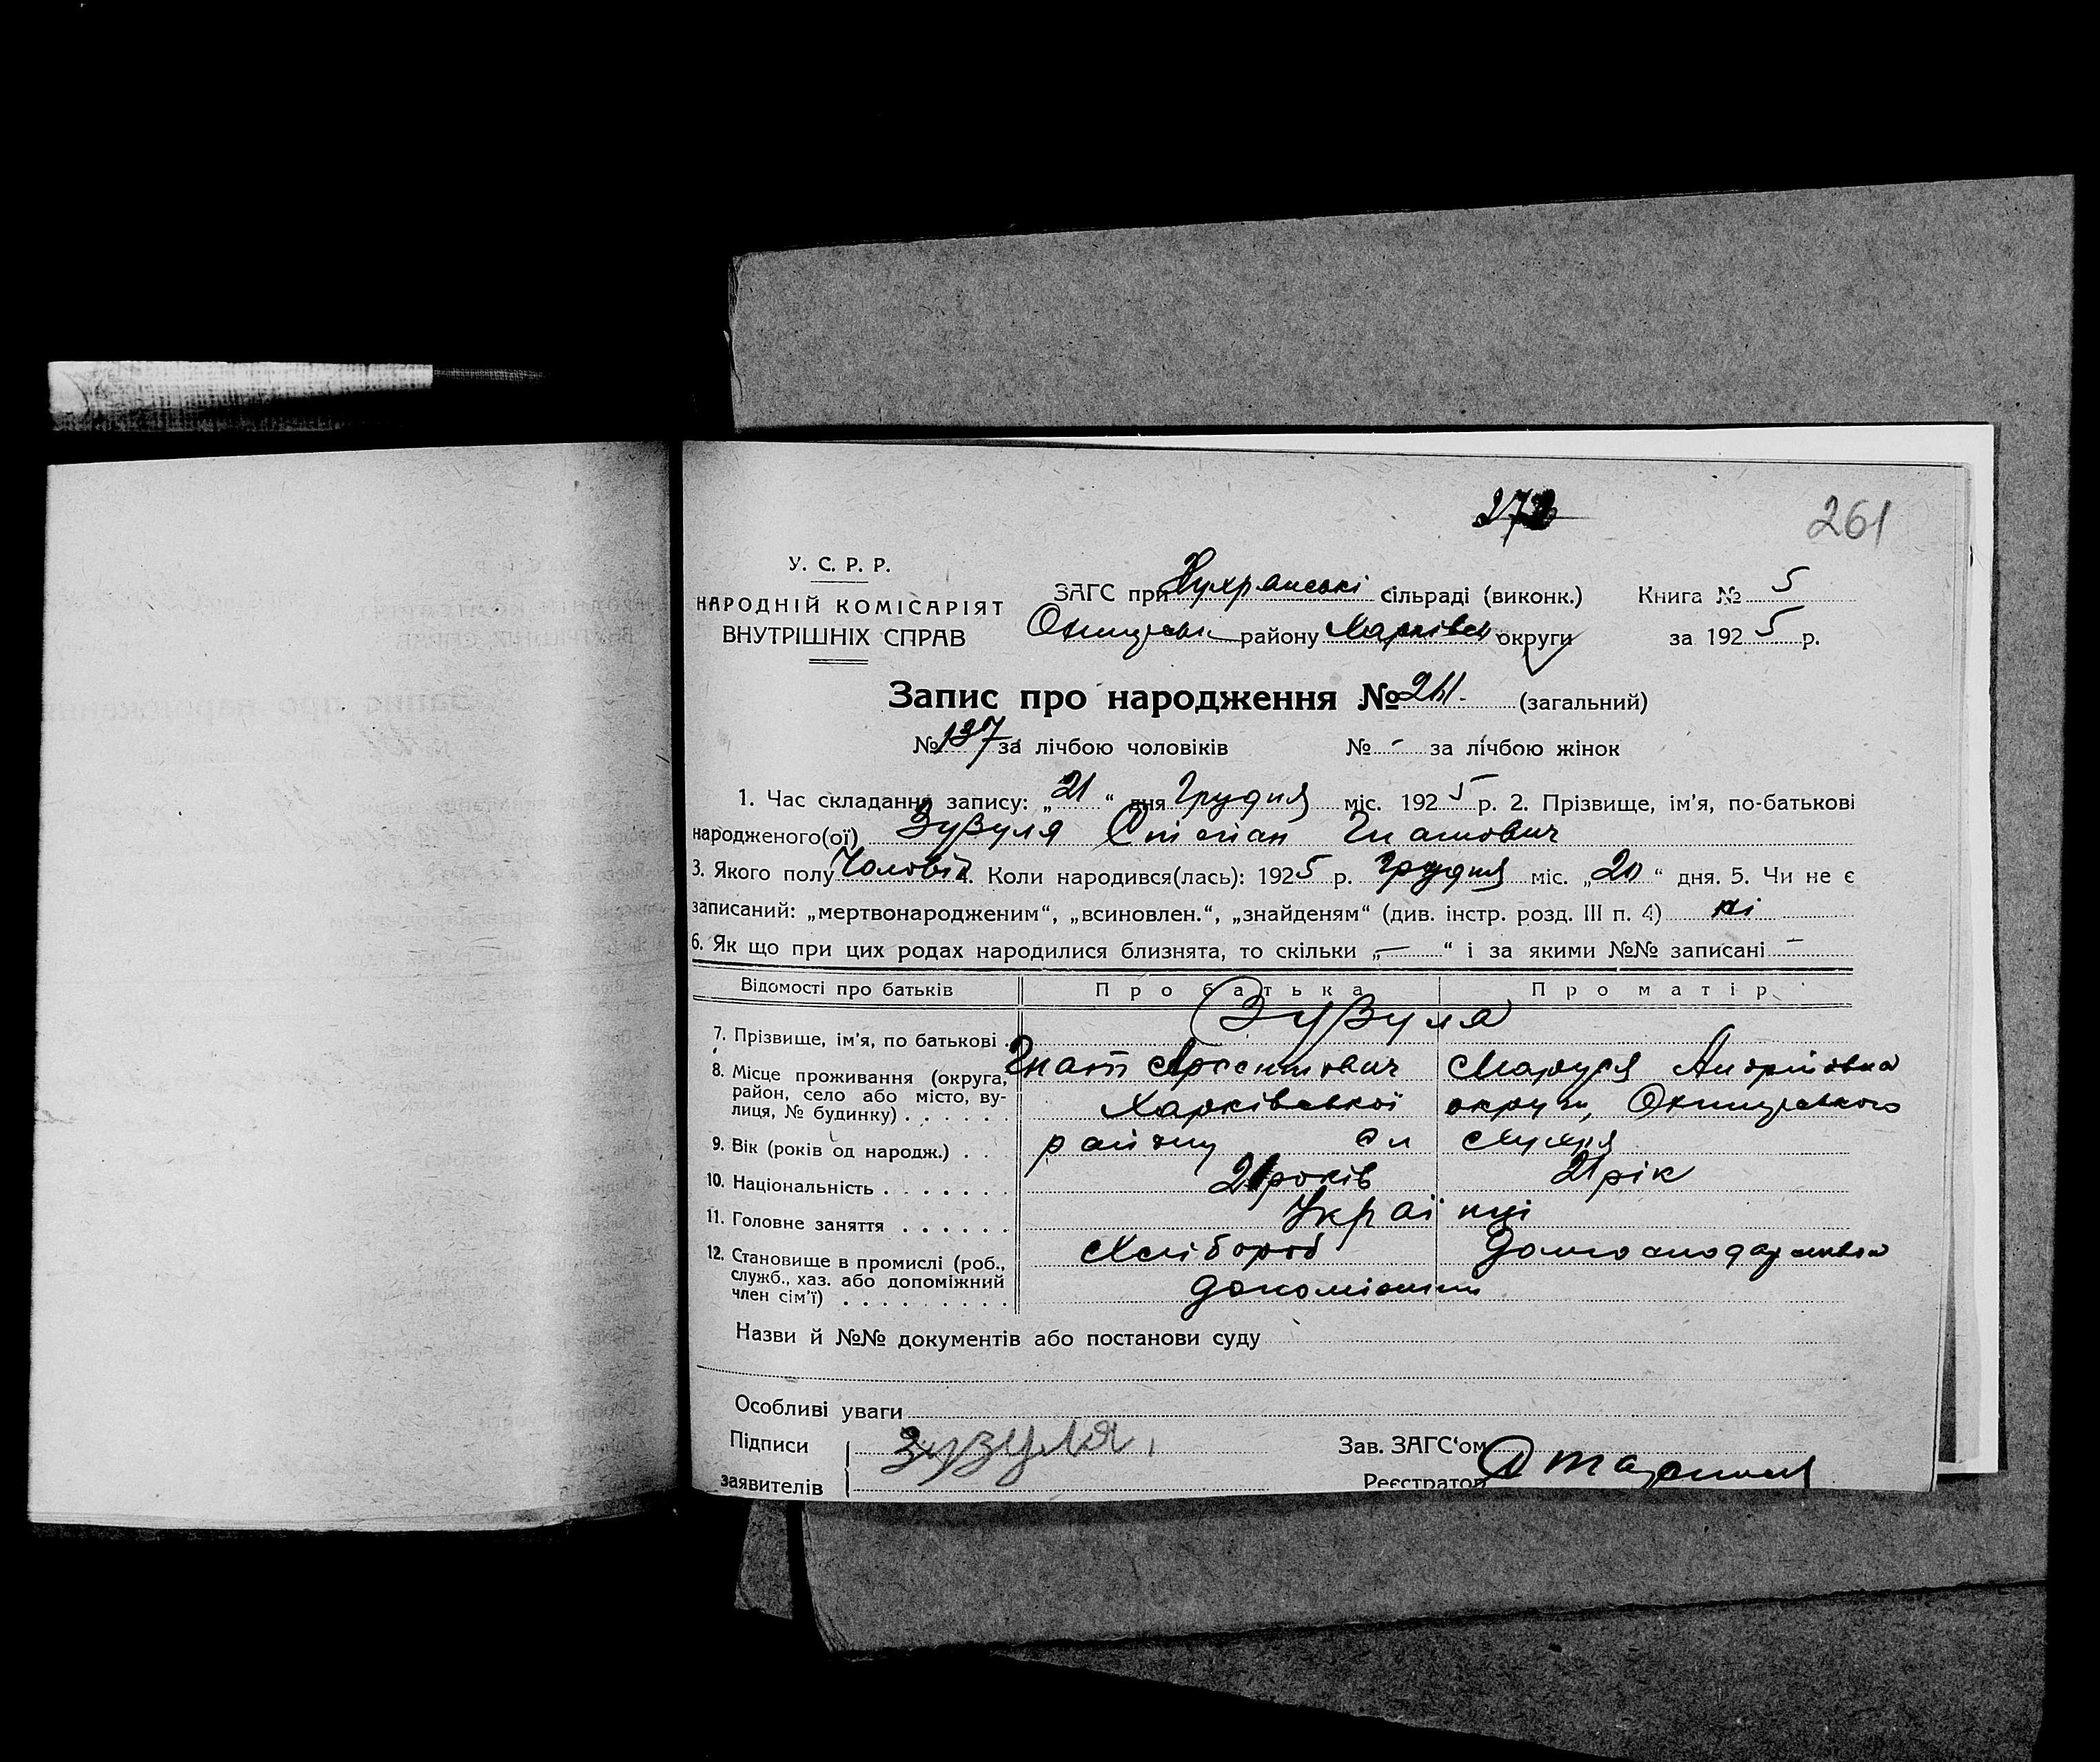 261
У. С. Р. Р.
НАРОДНІЙ КОМІСАРІЯТ
ВНУТРІШНІХ СПРАВ
ЗАГС при сільраді (виконк.) Книга № 5
району Харківськ округи за 1925 р.
Запис про народження № (загальний)
№ 137 за лічбою чоловіків № - за лічбою жінок
1. Час складання запису: „21“ дня Грудня міс. 1925 р. 2. Прізвище, ім'я, по-батькові
народженого(ої) Зузуля Степан Гнатович
3. Якого полу Чоловік 4. Коли народився(лась): 1925 р. Грудня міс. „20“ дня. 5. Чи не є
записаний: „мертвонародженим“, „всиновлен.“, „знайденям“ (див. інстр. розд. III п. 4) ні
6. Як що при цих родах народилися близнята, то скільки „—“ і за якими №№ записані —
Відомості про батьків Про батька Про матір
7. Прізвище, ім'я, по батькові . Зузуля
Гнат Марія Андріївна
8. Місце проживання (округа, район, село або місто, вулиця, № будинку) . . . . . Харківської округи, Охтирського
району
9. Вік (років од народж.) . . 21 років 21 рік
10. Національність . . . . . . . Українці
11. Головне заняття . . . . . . Хлібороб
12. Становище в промислі (роб., служб., хаз. або допоміжний член сім'ї) . . . . . . . . .
Назви й №№ документів або постанови суду
Особливі уваги
Підписи
заявителів
Зузуля
Зав. ЗАГС'ом
Реєстратор